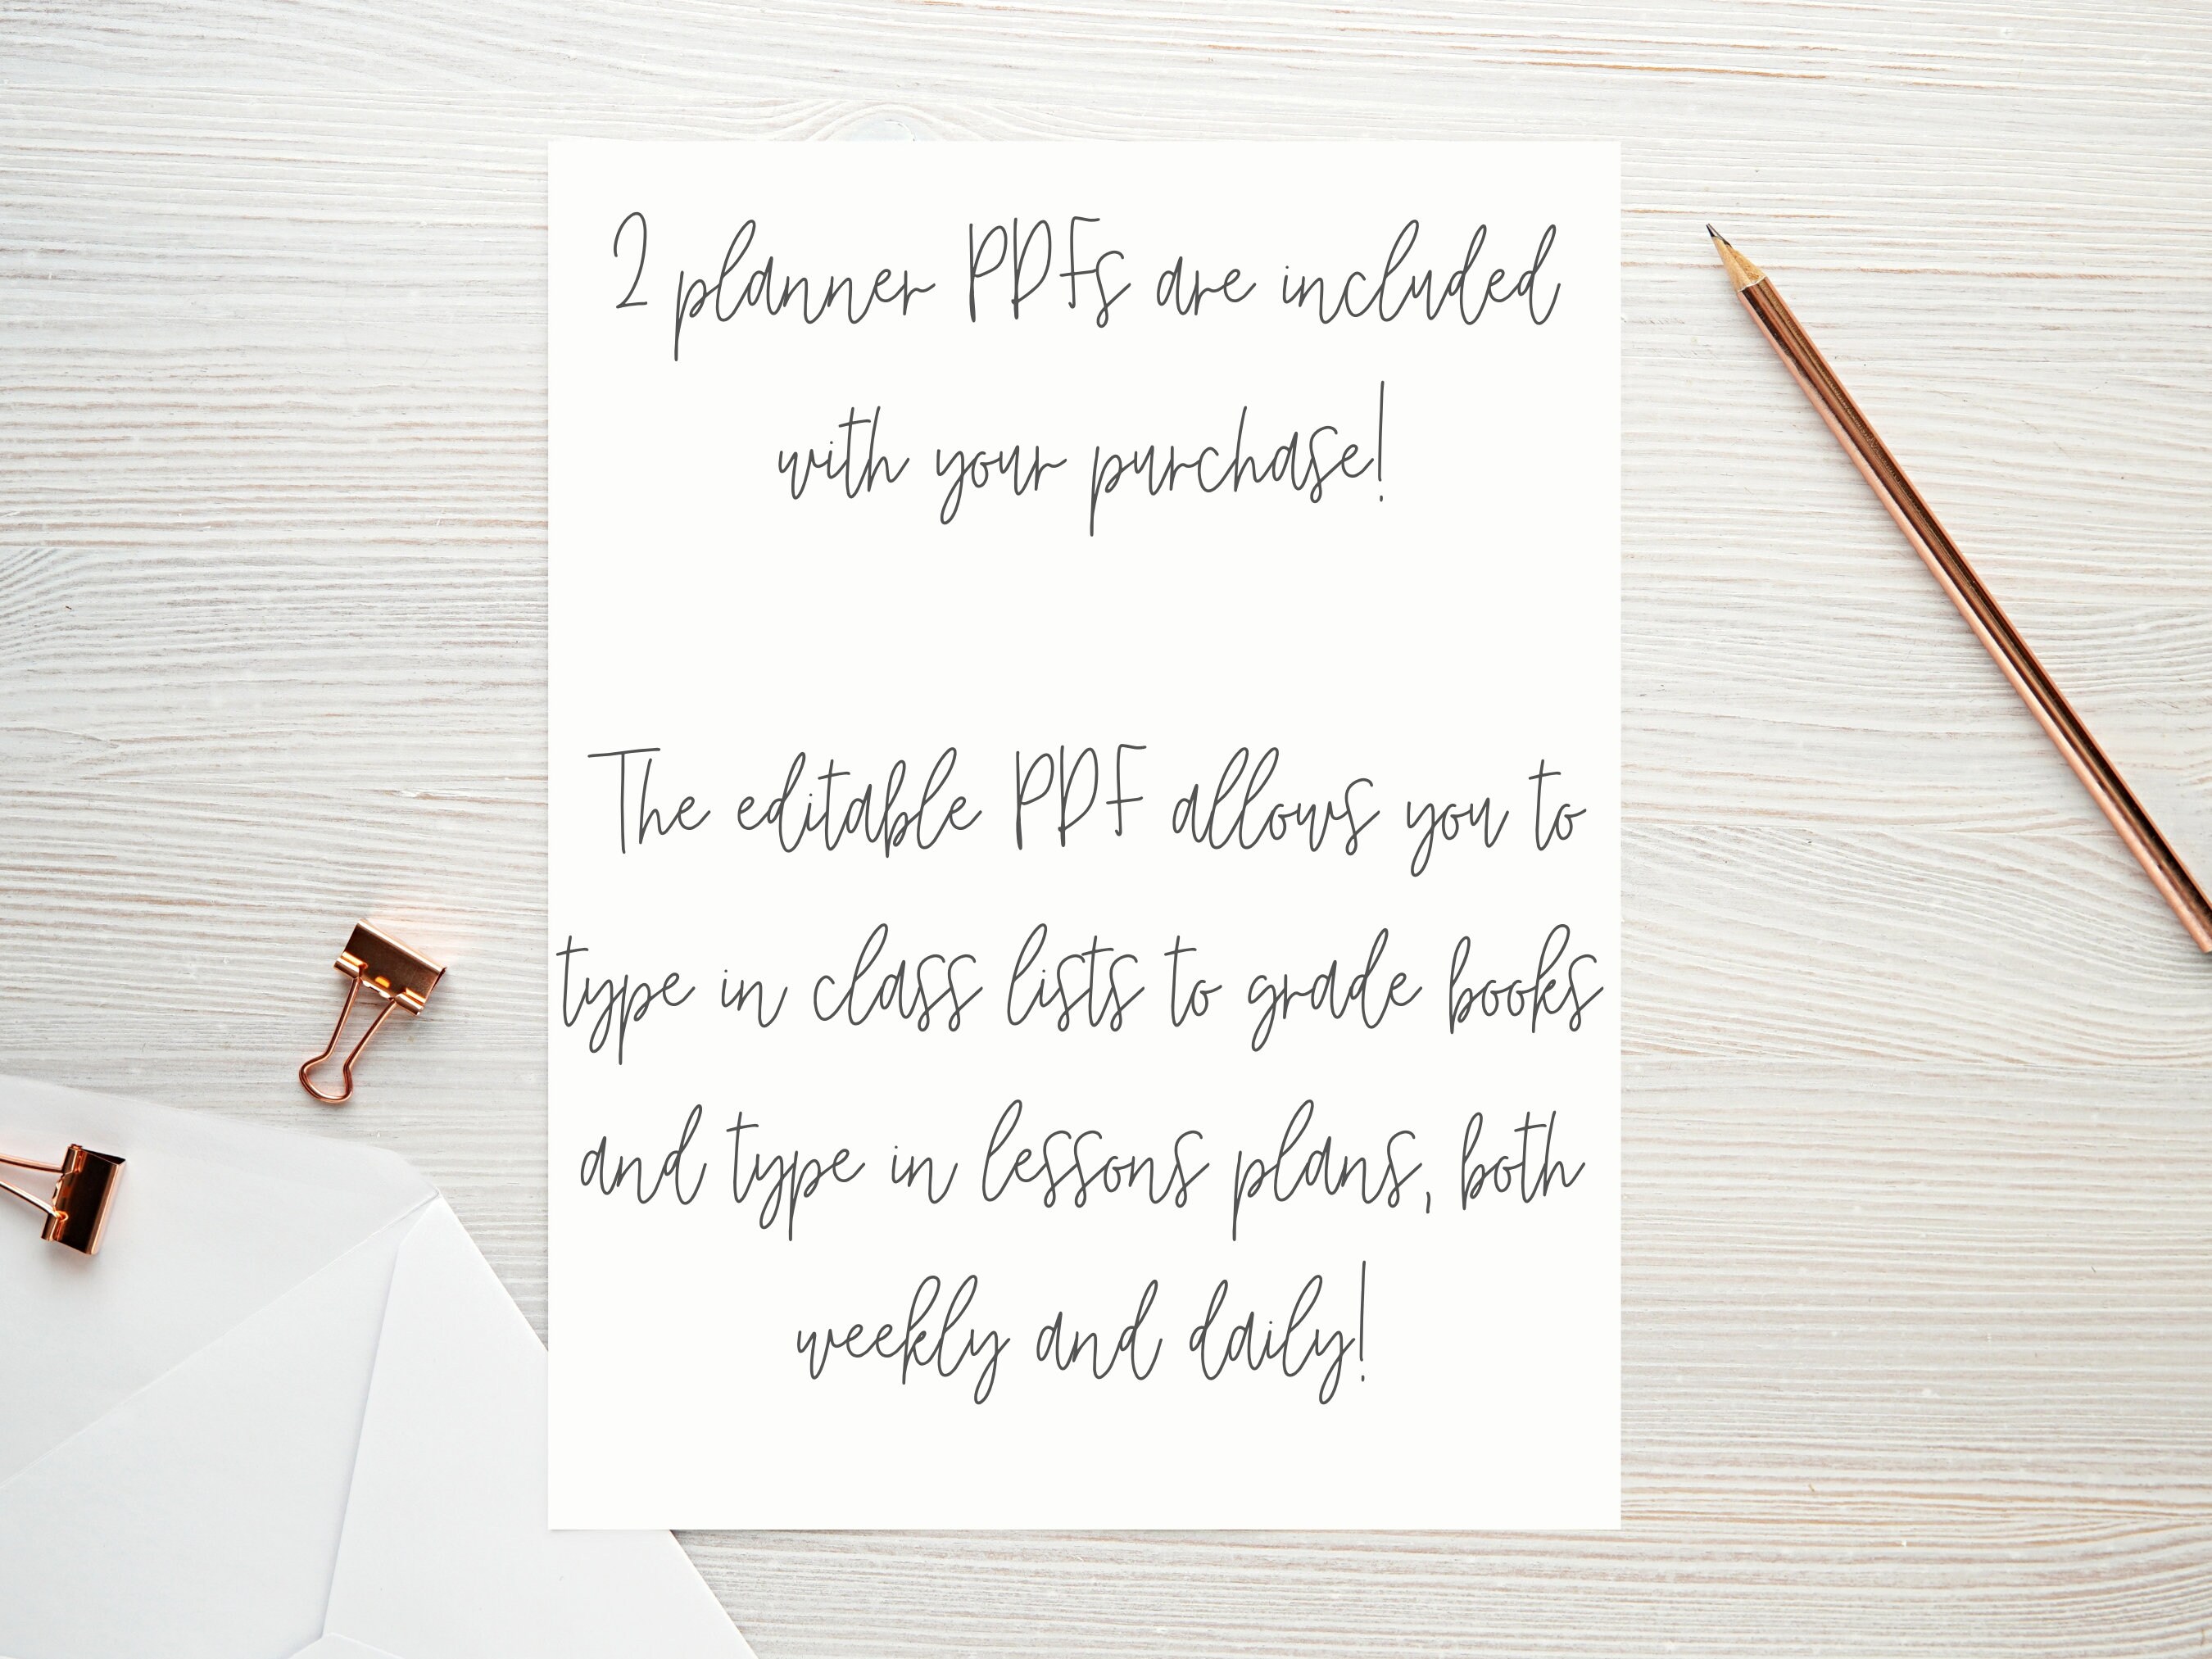 2 planner PDFs are included
with your purchase!
The editable PDF allows you to
type in class lists to grade books
and type in lessons plans, both
weekly and daily!